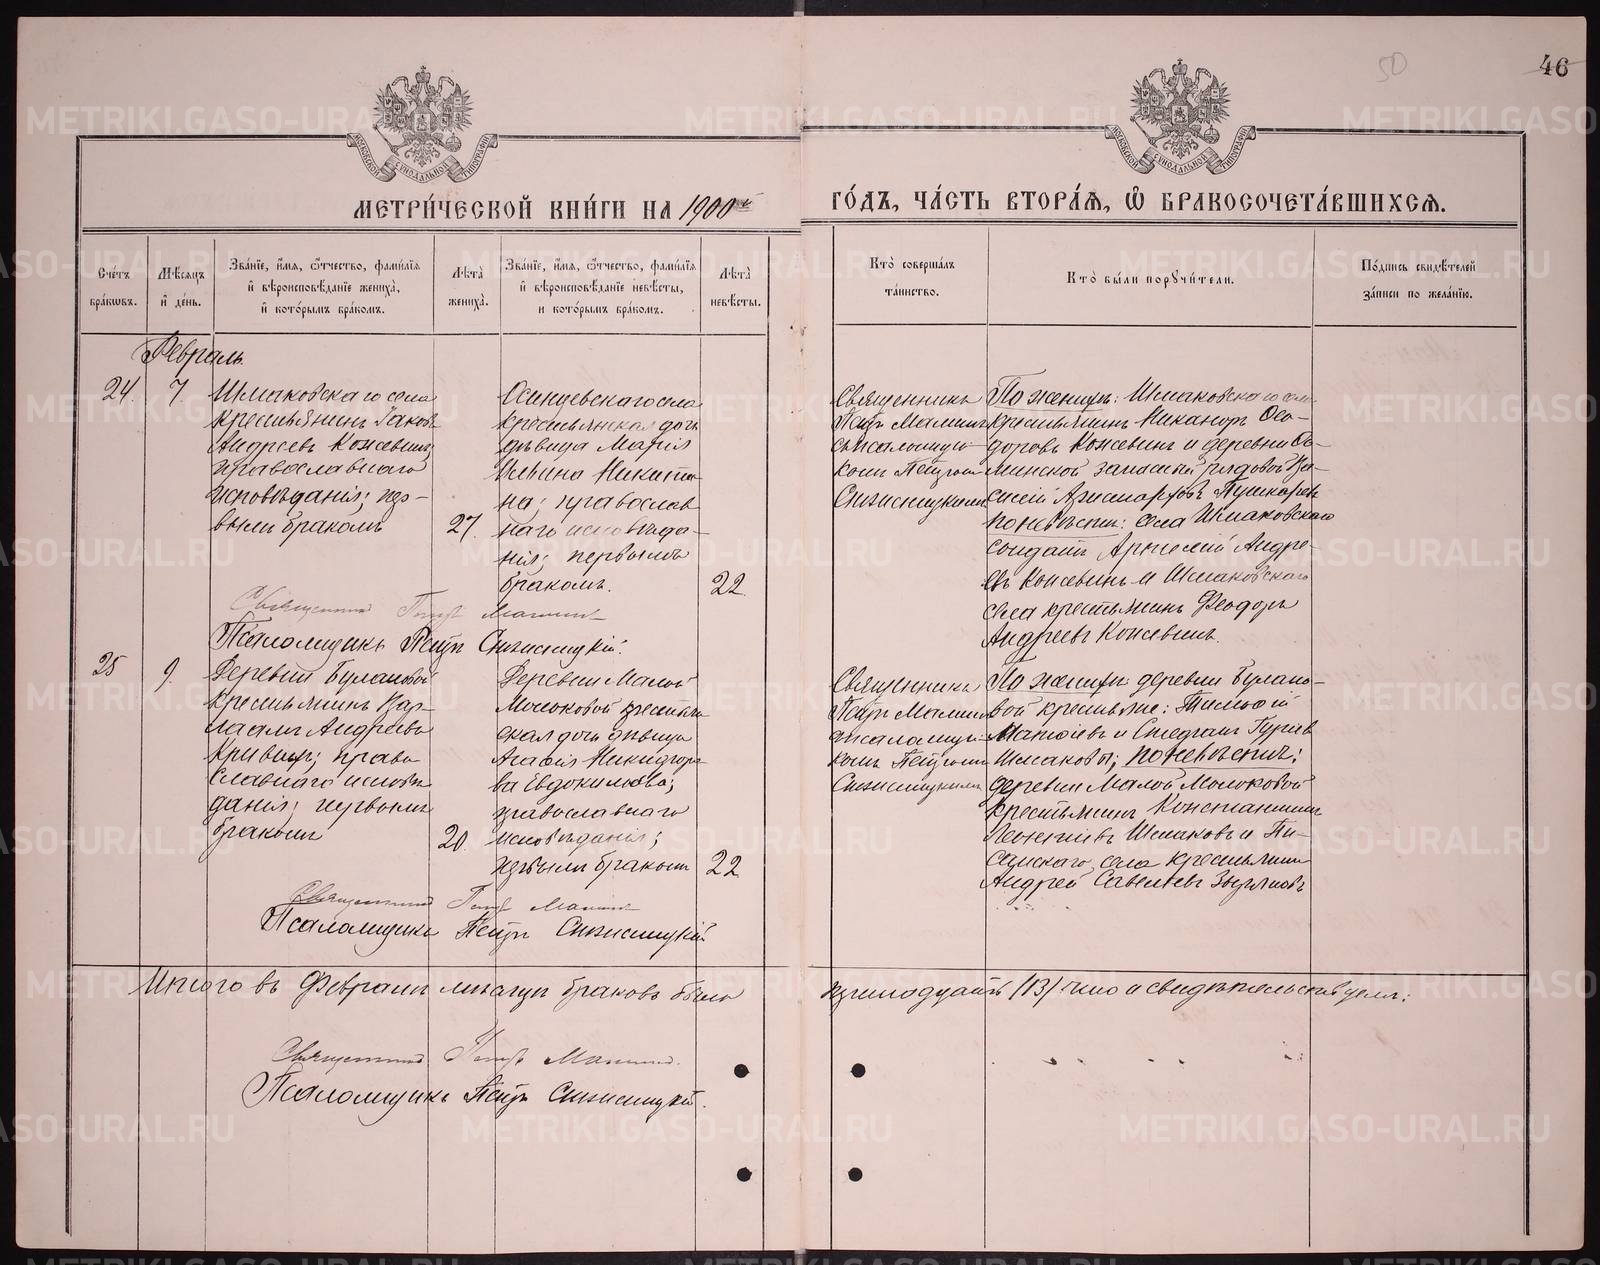 50
46
МОСКОВСКОЙ СѴНОДАЛЬНОЙ ТИПОГРАФІИ
МОСКОВСКОЙ СѴНОДАЛЬНОЙ ТИПОГРАФІИ
МЕТРИ́ЧЕСКОЙ КНИ́ГИ НА 1900й
ГО́ДЪ, ЧА́СТЬ ВТОРА́Ѧ, Ѽ БРАКОСОЧЕТА́ВШИХСѦ.
Сче́тъ бра́кѡвъ.
Мѣ́сѧцъ и҆ де́нь.
Зва́нїе, и҆́мѧ, ѻ҆́тчество, фами́лїѧ и҆ вѣроисповѣ́данїе жениха̀, и҆ кото́рымъ бра́комъ.
Лѣ́та̀ жениха̀.
Зва́нїе, и҆́мѧ, ѻ҆́тчество, фами́лїѧ и҆ вѣроисповѣ́данїе невѣ́сты, и кото́рымъ бра́комъ.
Лѣ́та̀ невѣ́сты.
Кто̀ соверша́лъ та́инство.
Кто̀ бы́ли порꙋчи́тели.
По́дпись свидѣ́телей за́писи по жела́нїю.
Февраль.
24.
7.
Шмаковскаго села
крестьянинъ Іаковъ
Андреевъ Кожевинъ,
православнаго
исповѣданія; пер-
вымъ бракомъ
27.
Осинцевскаго села
крестьянская дочь
дѣвица Марія
Ильина Никити-
на; православ
наго исповѣда-
нія; первымъ
бракомъ.
22.
Священникъ
Петръ Маминъ
съ псаломщи-
комъ Петромъ
По женихѣ: Шмаковскаго села
крестьянинъ Никаноръ Ѳео-
доровъ Кожевинъ и деревни
запасной рядовой Ва-
силій Аристарховъ Пушкаревъ
по невѣстѣ: села Шмаковскаго
солдатъ Артемій Андре-
евъ Кожевинъ и Шмаковскаго
села крестьянинъ Феодоръ
Андреевъ Кожевинъ.
Священникъ Петръ Маминъ
Псаломщикъ Петръ
25
9.
Деревни Булановой
крестьянинъ Вар-
лаамъ Андреевъ
право-
славнаго исповѣ
данія; первымъ
бракомъ
20.
Деревни Малой
Молоковой крестьян
ская дочь дѣвица
Агафія Никифоро-
ва Евдокимова;
православнаго
исповѣданія;
первымъ бракомъ
22.
Священникъ
Петръ Маминъ
съ псаломщи-
комъ Петромъ
По женихѣ: деревни Булано-
вой крестьяне: Тимофей
и Стефанъ Гуріевъ
Шмаковы; по невѣстѣ:
деревни Малой Молоковой
крестьянинъ Константинъ
Леонтіевъ Шмаковъ и Пи-
санскаго села крестьянинъ
Андрей Савельевъ Зыряновъ
Священникъ Петръ Маминъ
Псаломщикъ Петръ
Итого въ Февралѣ мѣсяцѣ браковъ было
тринадцать (13) что и свидѣтельствуемъ:
Священникъ Петръ Маминъ.
Псаломщикъ Петръ
METRIKI.GASO-URAL.RU